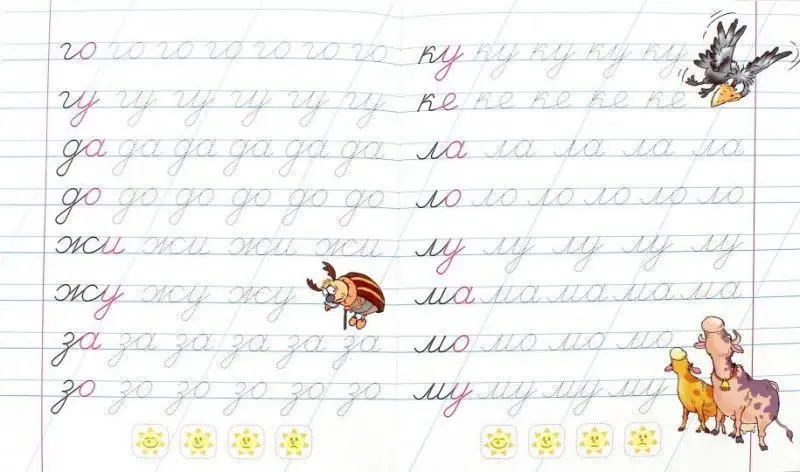 го го го го го го го
гу гу гу гу гу гу
да да да да да да
до до до до до до
жи жи жи жи
жу жу жу
за за за за за за
зо зо зо зо зо зо
ку ку ку ку ку
ке ке ке ке ке
ла ла ла ла ла
ло ло ло ло ло ло
лу лу лу лу лу
ма ма ма ма ма
мо мо мо мо
му му му му